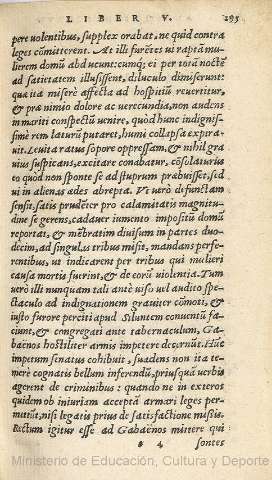 LIBER V. 295
pere volentibus, supplex orabat, ne quid contra
leges cōmitterent. At illi furētes vi raptā mu-
lierem domū abducunt: cumq́; ei per totā noctē
ad satietatem illusissent, diluculo dimiserunt:
quæ ita miserè affecta ad hospitiū revertitur,
& præ nimio dolore ac verecundia, non audens
in mariti conspectū venire, quod hunc indignis-
simè rem laturū putaret, humi collapsa expira-
vit. Levita ratus sopore oppressam, & nihil gra-
vius suspicans, excitare conabatur, cōsolaturus
eo quod non sponte se ad stuprum præbuisset, sed
vi in alienas ædes abrepta. Vt verò defunctam
sensit, satis prudēter pro calamitatis magnitu-
dine se gerens, cadaver iumento impositū domū
reportat, & mēbratim divisum in partes duo-
decim, ad singulas tribus misit, mandans perfe-
rentibus, ut indicarent per tribus qui mulieri
causa mortis fuerint, & de eorū violentia. Tum
verò illi nunquam tali antè viso vel audito spe-
ctaculo ad indignationem graviter cōmoti, &
iusto furore perciti apud Siluntem conventū fa-
ciunt, & congregati ante tabernaculum, Ga-
baënos hostiliter armis impetere decernūt. Hūc
impetum senatus cohibuit, suadens non ita te-
merè cognatis bellum inferendū, priusquā verbis
agerent de criminibus: quando ne in exteros
quidem ob iniuriam acceptā armari leges per-
mittūt, nisi legatis prius de satisfactione missis.
Rectum igitur esse ad Gabaënos mittere qui
4 sontes
Ministerio de Educación, Cultura y Deporte